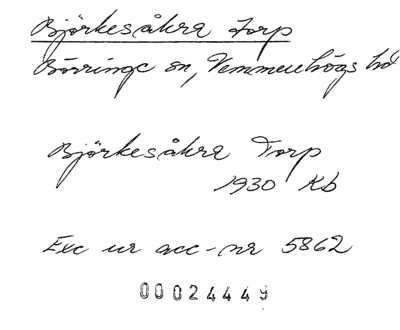 Björkesåkra Torp
Börringe sn, Vemmenhögs hd
Björkesåkra Torp
1930 Kb
Exc ur acc-nr 5862
00024449